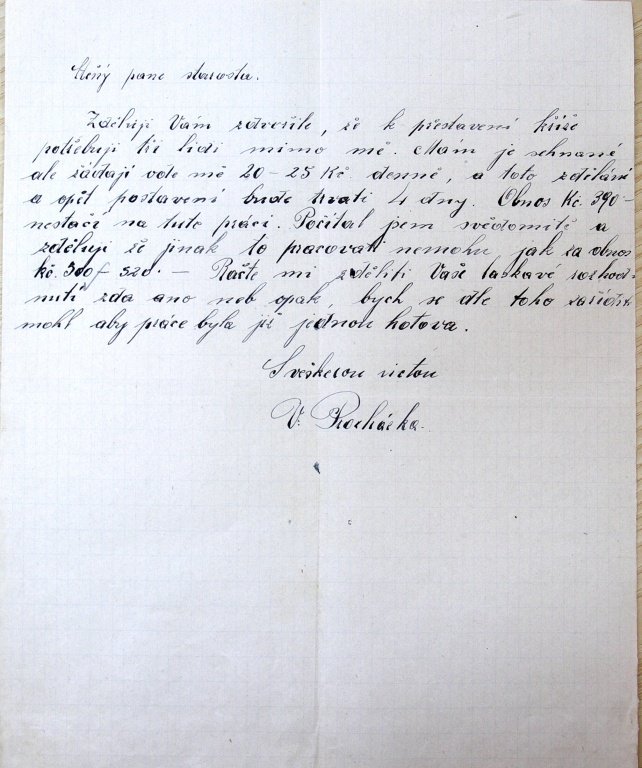 Ctěný pane starosta.
Zděluji Vám zdvořile, že k přestavení kříže
potřebuji tři lidi mimo mě. Mám je sehnané
ale žádají ode mě 20–25 Kč. denně, a toto zdělání
a opět postavení bude trvati 4 dny. Obnos Kč. 390–
nestačí na tuto práci. Počítal jsem svědomitě a
zděluji že jinak to pracovati nemohu jak za obnos
Kč. 520.— Račte mi zděliti Vaše laskavé rozhod-
nutí zda ano neb opak, bych se dle toho zaříditi
mohl aby práce byla již jednou hotova.
S veškerou úctou
V. Procházka.